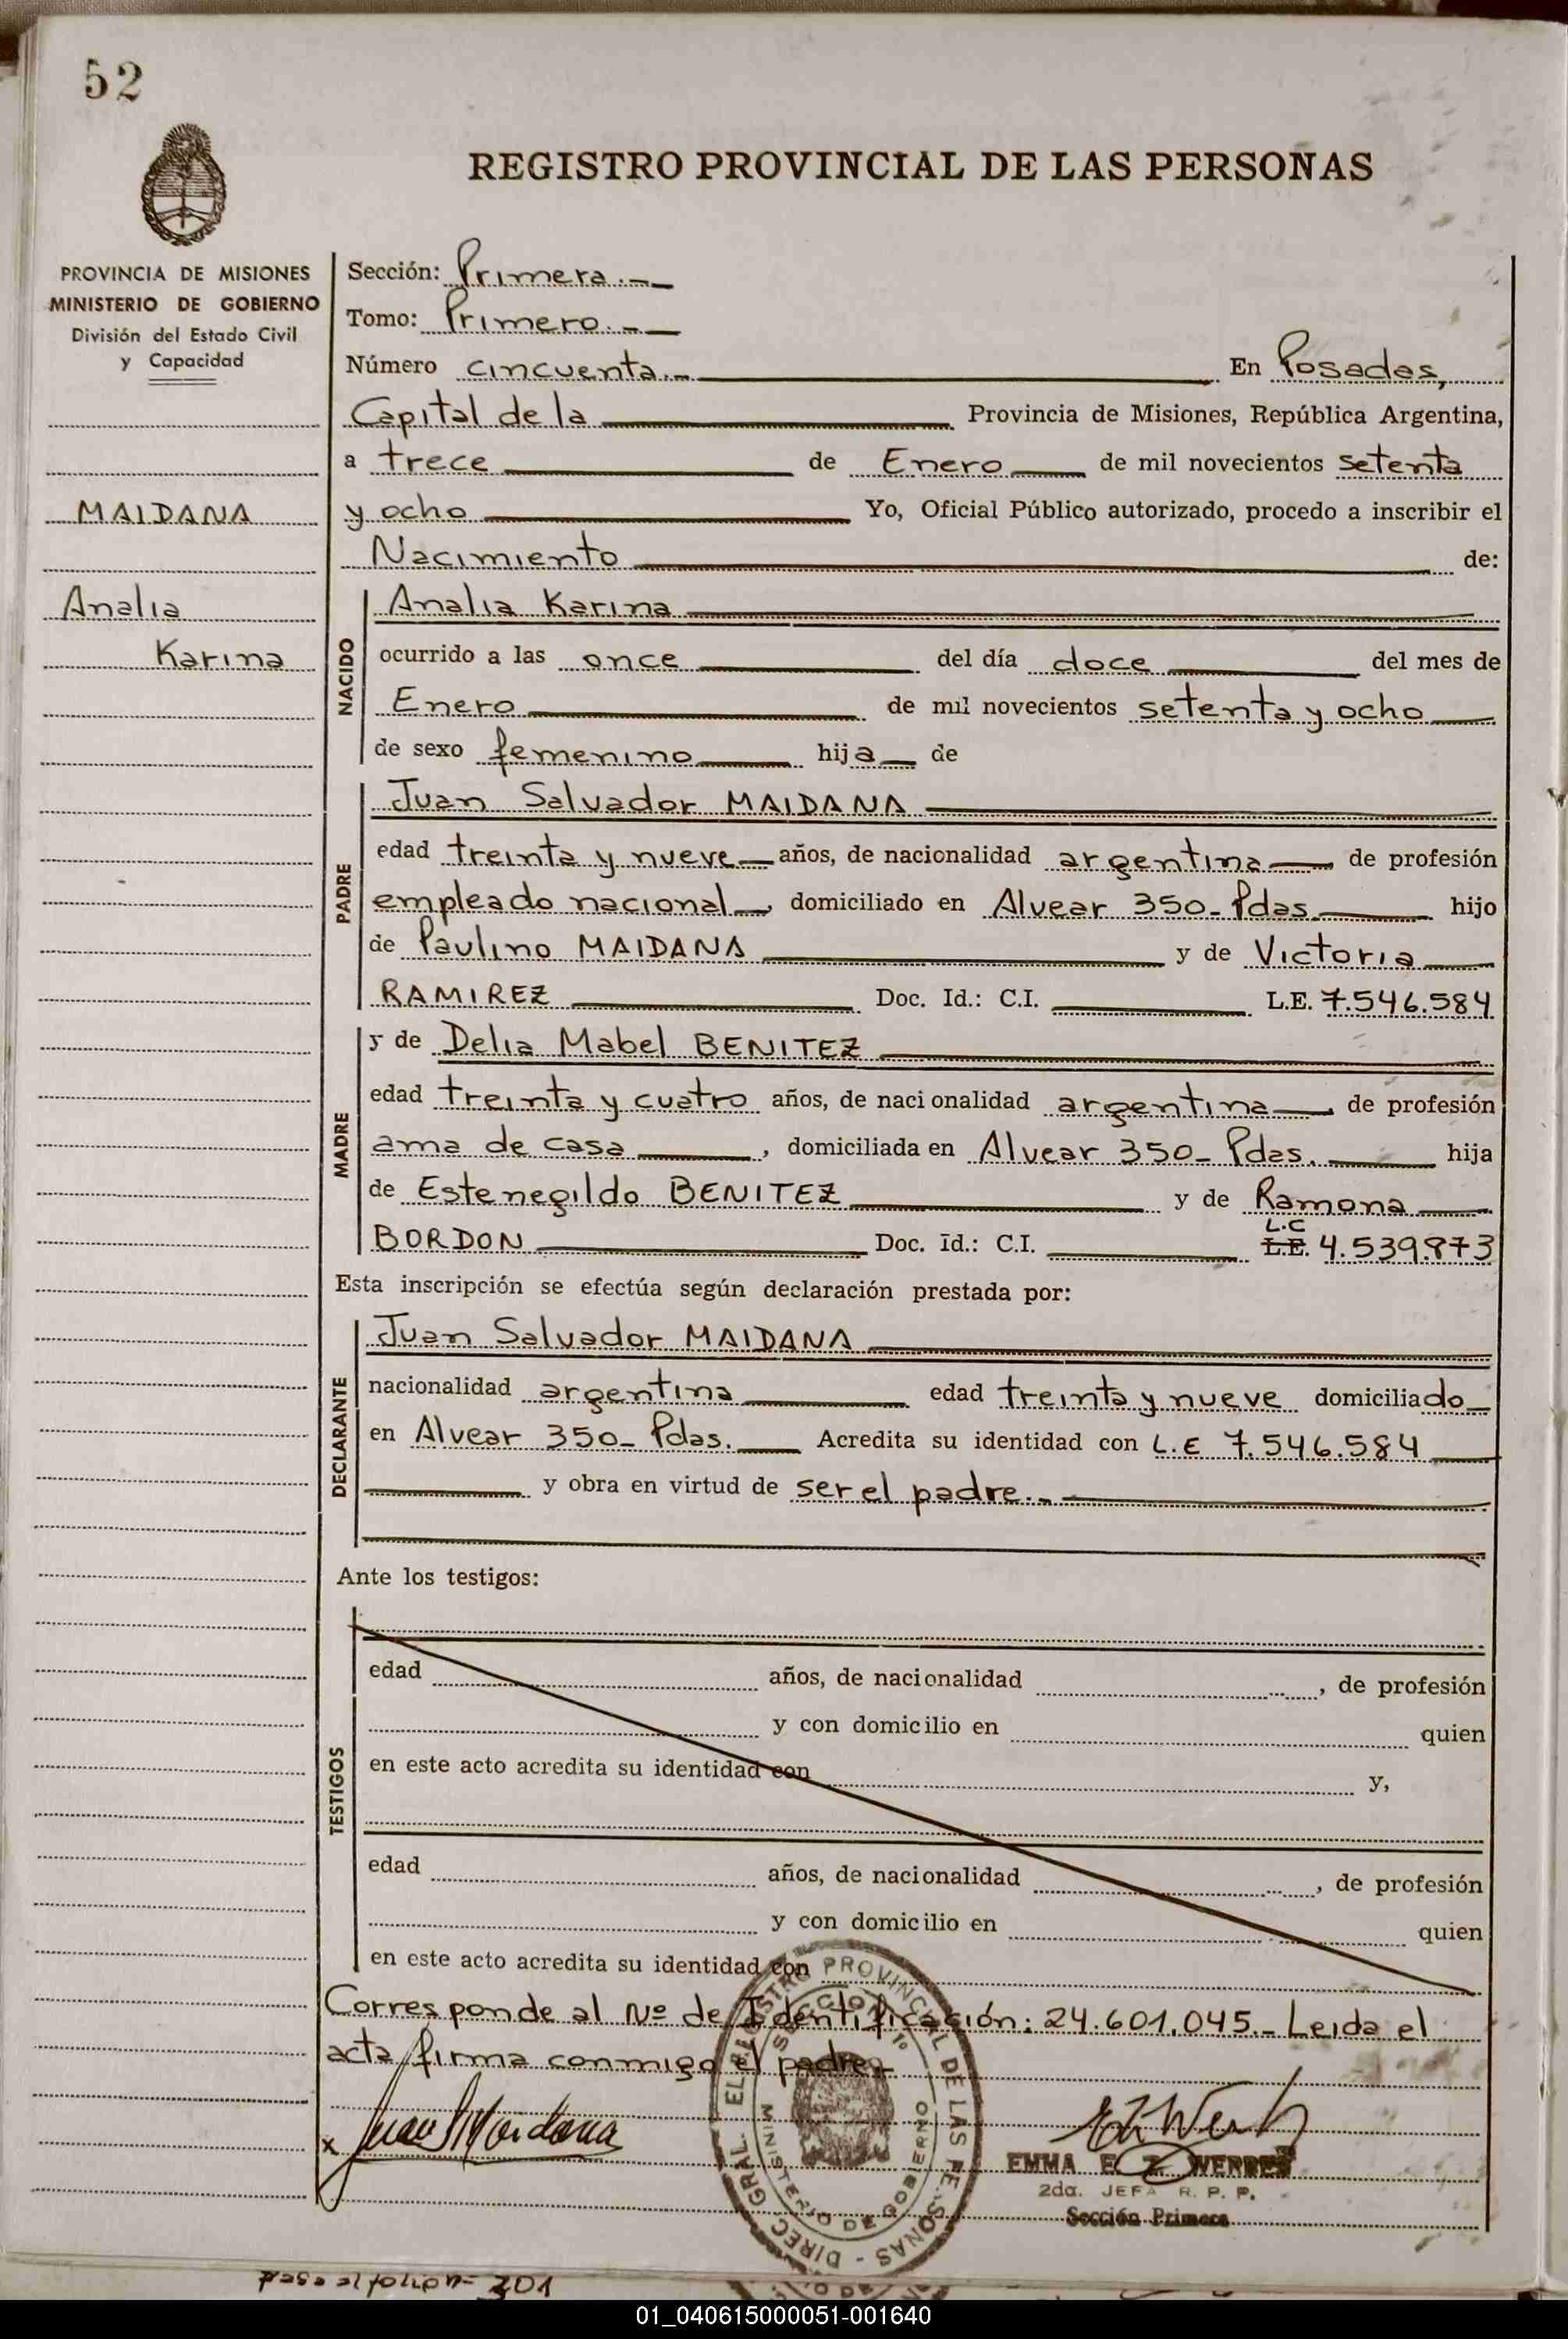 52
REGISTRO PROVINCIAL DE LAS PERSONAS
PROVINCIA DE MISIONES
MINISTERIO DE GOBIERNO
División del Estado Civil
y Capacidad
MAIDANA
Analia
Karina
Sección: Primera.-
Tomo: Primero.-
Número cincuenta.- En Posadas,
Capital de la Provincia de Misiones, República Argentina,
a trece de Enero de mil novecientos setenta
y ocho Yo, Oficial Público autorizado, procedo a inscribir el
Nacimiento de:
NACIDO
Analia Karina
ocurrido a las once del día doce del mes de
Enero de mil novecientos setenta y ocho
de sexo femenino hija de
PADRE
Juan Salvador MAIDANA
edad treinta y nueve años, de nacionalidad argentina de profesión
empleado nacional, domiciliado en Alvear 350- Pdas. hijo
de Paulino MAIDANA y de Victoria
RAMIREZ Doc. Id.: C.I. L.E. 7.546.584
MADRE
y de Delia Mabel BENITEZ
edad treinta y cuatro años, de nacionalidad argentina de profesión
ama de casa, domiciliada en Alvear 350- Pdas. hija
de Estenegildo BENITEZ y de Ramona
L.C
BORDON Doc. Id.: C.I. L.E. 4.539.873
Esta inscripción se efectúa según declaración prestada por:
DECLARANTE
Juan Salvador MAIDANA
nacionalidad argentina edad treinta y nueve domiciliado
en Alvear 350- Pdas. Acredita su identidad con L.E 7.546.584
y obra en virtud de ser el padre.-
Ante los testigos:
TESTIGOS
edad años, de nacionalidad , de profesión
y con domicilio en quien
en este acto acredita su identidad con y,
edad años, de nacionalidad , de profesión
y con domicilio en quien
en este acto acredita su identidad con
Corresponde al Nº de Identificación: 24.601.045.- Leida el
acta, firma conmigo el padre.-
x Juan S Maidana
EMMA E. Z.
2da. JEFA R. P. P.
Sección Primera
DIREC. GRAL. REGISTRO PROVINCIAL DE LAS PERSONAS
SECCION 1º
MINISTERIO DE GOBIERNO
pasa al folio nº 301
01_040615000051-001640